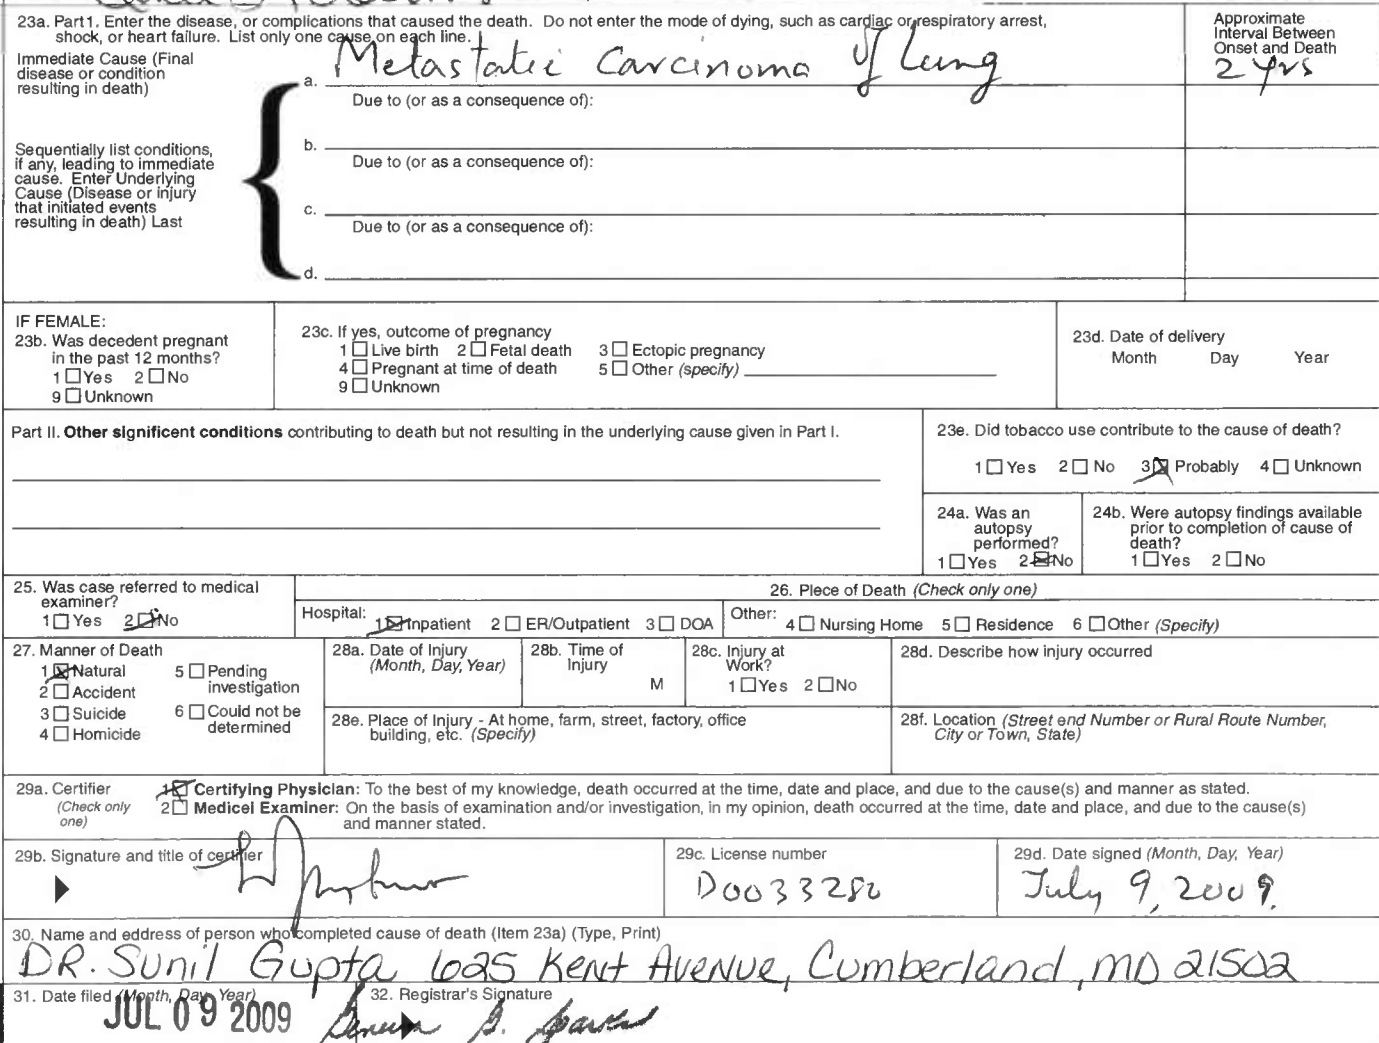 23a. Part1. Enter the disease, or complications that caused the death. Do not enter the mode of dying, such as cardiac or respiratory arrest,
shock, or heart failure. List only one cause on each line.
Approximate
Interval Between
Onset and Death
Immediate Cause (Final
disease or condition
resulting in death)
a. Metastatic Carcinoma of Lung
2 yrs
Due to (or as a consequence of):
Sequentially list conditions,
if any, leading to immediate
cause. Enter Underlying
Cause (Disease or injury
that initiated events
resulting in death) Last
b.
Due to (or as a consequence of):
c.
Due to (or as a consequence of):
d.
IF FEMALE:
23b. Was decedent pregnant
in the past 12 months?
1 Yes 2 No
9 Unknown
23c. If yes, outcome of pregnancy
1 Live birth 2 Fetal death 3 Ectopic pregnancy
4 Pregnant at time of death 5 Other (specify)
9 Unknown
23d. Date of delivery
Month Day Year
Part II. Other significent conditions contributing to death but not resulting in the underlying cause given in Part I.
23e. Did tobacco use contribute to the cause of death?
1 Yes 2 No 3 Probably 4 Unknown
24a. Was an
autopsy
performed?
1 Yes 2 No
24b. Were autopsy findings available
prior to completion of cause of
death?
1 Yes 2 No
25. Was case referred to medical
examiner?
1 Yes 2 No
26. Plece of Death (Check only one)
Hospital: 1 Inpatient 2 ER/Outpatient 3 DOA Other: 4 Nursing Home 5 Residence 6 Other (Specify)
27. Manner of Death
1 Natural
2 Accident
3 Suicide
4 Homicide
5 Pending
investigation
6 Could not be
determined
28a. Date of Injury
(Month, Day, Year)
28b. Time of
Injury
M
28c. Injury at
Work?
1 Yes 2 No
28d. Describe how injury occurred
28e. Place of Injury - At home, farm, street, factory, office
building, etc. (Specify)
28f. Location (Street end Number or Rural Route Number,
City or Town, State)
29a. Certifier
(Check only
one)
1 Certifying Physician: To the best of my knowledge, death occurred at the time, date and place, and due to the cause(s) and manner as stated.
2 Medicel Examiner: On the basis of examination and/or investigation, in my opinion, death occurred at the time, date and place, and due to the cause(s)
and manner stated.
29b. Signature and title of certifier
29c. License number
D0033280
29d. Date signed (Month, Day, Year)
July 9, 2009.
30. Name and eddress of person who completed cause of death (Item 23a) (Type, Print)
DR. Sunil Gupta 625 Kent Avenue, Cumberland, MD 21502
31. Date filed (Month, Day, Year)
JUL 09 2009
32. Registrar's Signature